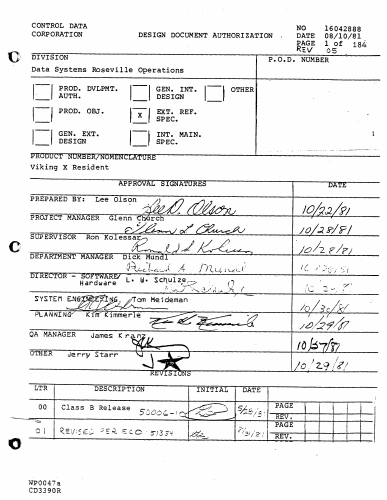 CONTROL DATA
CORPORATION
DESIGN DOCUMENT AUTHORIZATION
NO 16042888
DATE 08/10/81
PAGE 1 of 184
REV 05
DIVISION
Data Systems Roseville Operations
P.O.D. NUMBER
PROD. DVLPMT. AUTH.
GEN. INT. DESIGN
OTHER
PROD. OBJ.
X EXT. REF. SPEC.
GEN. EXT. DESIGN
INT. MAIN. SPEC.
PRODUCT NUMBER/NOMENCLATURE
Viking X Resident
APPROVAL SIGNATURES DATE
PREPARED BY: Lee Olson Lee D. Olson 10/22/81
PROJECT MANAGER Glenn Church Glenn L Church 10/28/81
SUPERVISOR Ron Kolessar 10/28/81
DEPARTMENT MANAGER Dick Mundl
DIRECTOR - SOFTWARE/ L. W. Schulze
Hardware
SYSTEM ENGINEERING, Tom Meideman 10/30/81
PLANNING Kim Kimmerle 10/29/81
QA MANAGER James Kranz 10/27/81
OTHER Jerry Starr 10/29/81
REVISIONS
LTR DESCRIPTION INITIAL DATE
00 Class B Release 50006-10 PAGE
REV.
01 REVISED PER ECO 51354 PAGE
REV.
WP0047a
CD3390R